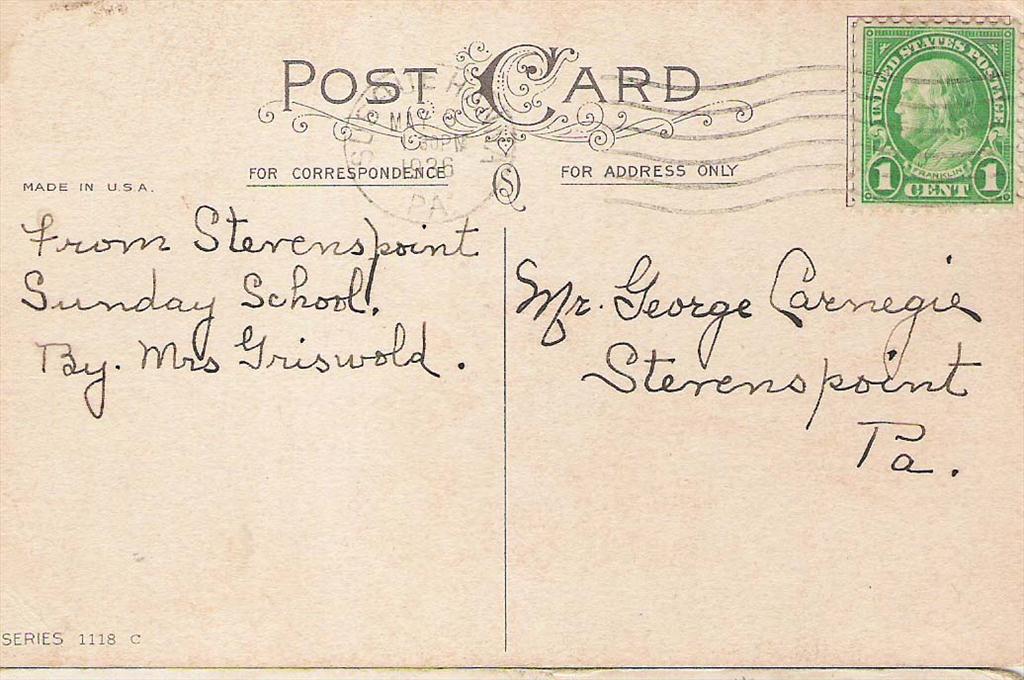 POST CARD
UNITED STATES POSTAGE
FRANKLIN
1 CENT 1
MAY
30PM
1926
PA
FOR CORRESPONDENCE
FOR ADDRESS ONLY
MADE IN U.S.A.
From Stevenspoint
Sunday School.
By. Mrs Griswold.
Mr. George Carnegie
Stevenspoint
Pa.
SERIES 1118 C